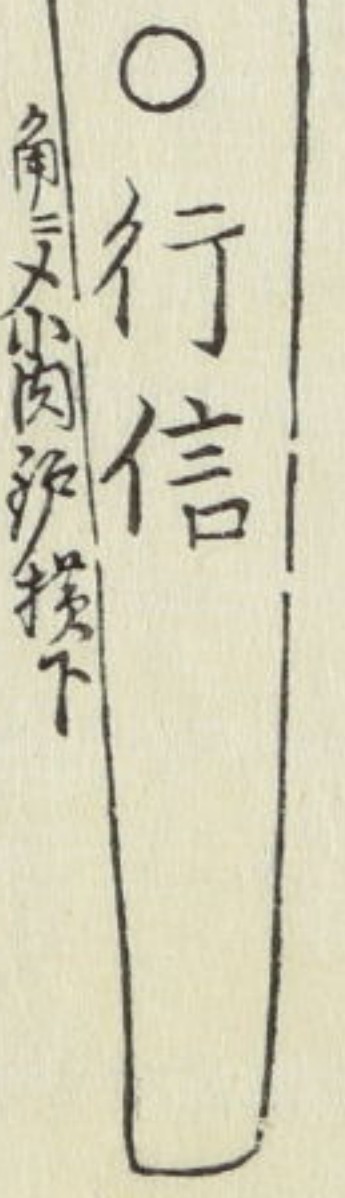 行信
角ニメ小肉鈩横下